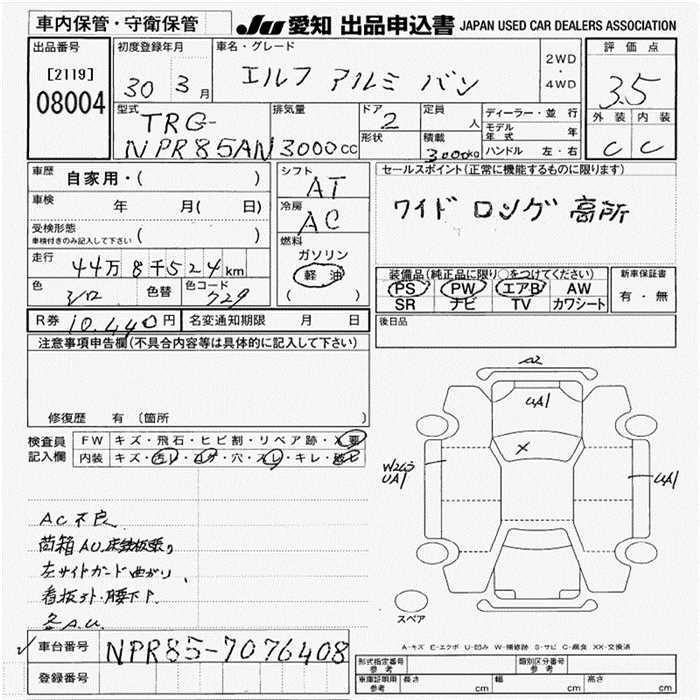 車内保管・守衛保管
JU 愛知 出品申込書 JAPAN USED CAR DEALERS ASSOCIATION
出品番号
[2119]
08004
初度登録年月
30 3月
車名・グレード
エルフ アルミ バン
2WD
・
4WD
評価点
3.5
外装 内装
C C
型式
TRG-
NPR85AN
排気量
3000cc
ドア
2
形状
定員
人
積載
3000kg
ディーラー・並行
モデル年式 年
ハンドル 左・右
車歴 自家用・( )
車検 年 月( 日)
受検形態
車検付きのみ記入して下さい ( )
走行 44万8千524km
色 色替 色コード 729
R券 10,440円 名変通知期限 月 日
シフト
AT
冷房
AC
燃料
ガソリン
軽油
( )
セールスポイント(正常に機能するものに限ります)
ワイド ロング 高所
装備品(純正品に限り○をつけてください)
PS PW エアB AW
SR ナビ TV カワシート
新車保証書
有・無
後日品
注意事項申告欄(不具合内容等は具体的に記入して下さい)
修復歴 有 〔箇所 〕
検査員記入欄
FW キズ・飛石・ヒビ割・リペア跡・X要
内装 キズ・汚レ・コゲ・穴・スレ・キレ・破レ
AC不良
荷箱AU.床鉄板張り
左サイドガード曲がり、
看板跡・腰下F
各A.U.
A2
UA1
X
W2G3
UA1
UA1
スペア
A-キズ E-エクボ U-凹み W-補修跡 S-サビ C-腐食 XX-交換済
車台番号 NPR85-7076408
登録番号
形式指定番号 参考
類別区分番号 参考
車庫証明用 参考 長さ cm 幅 cm 高さ cm